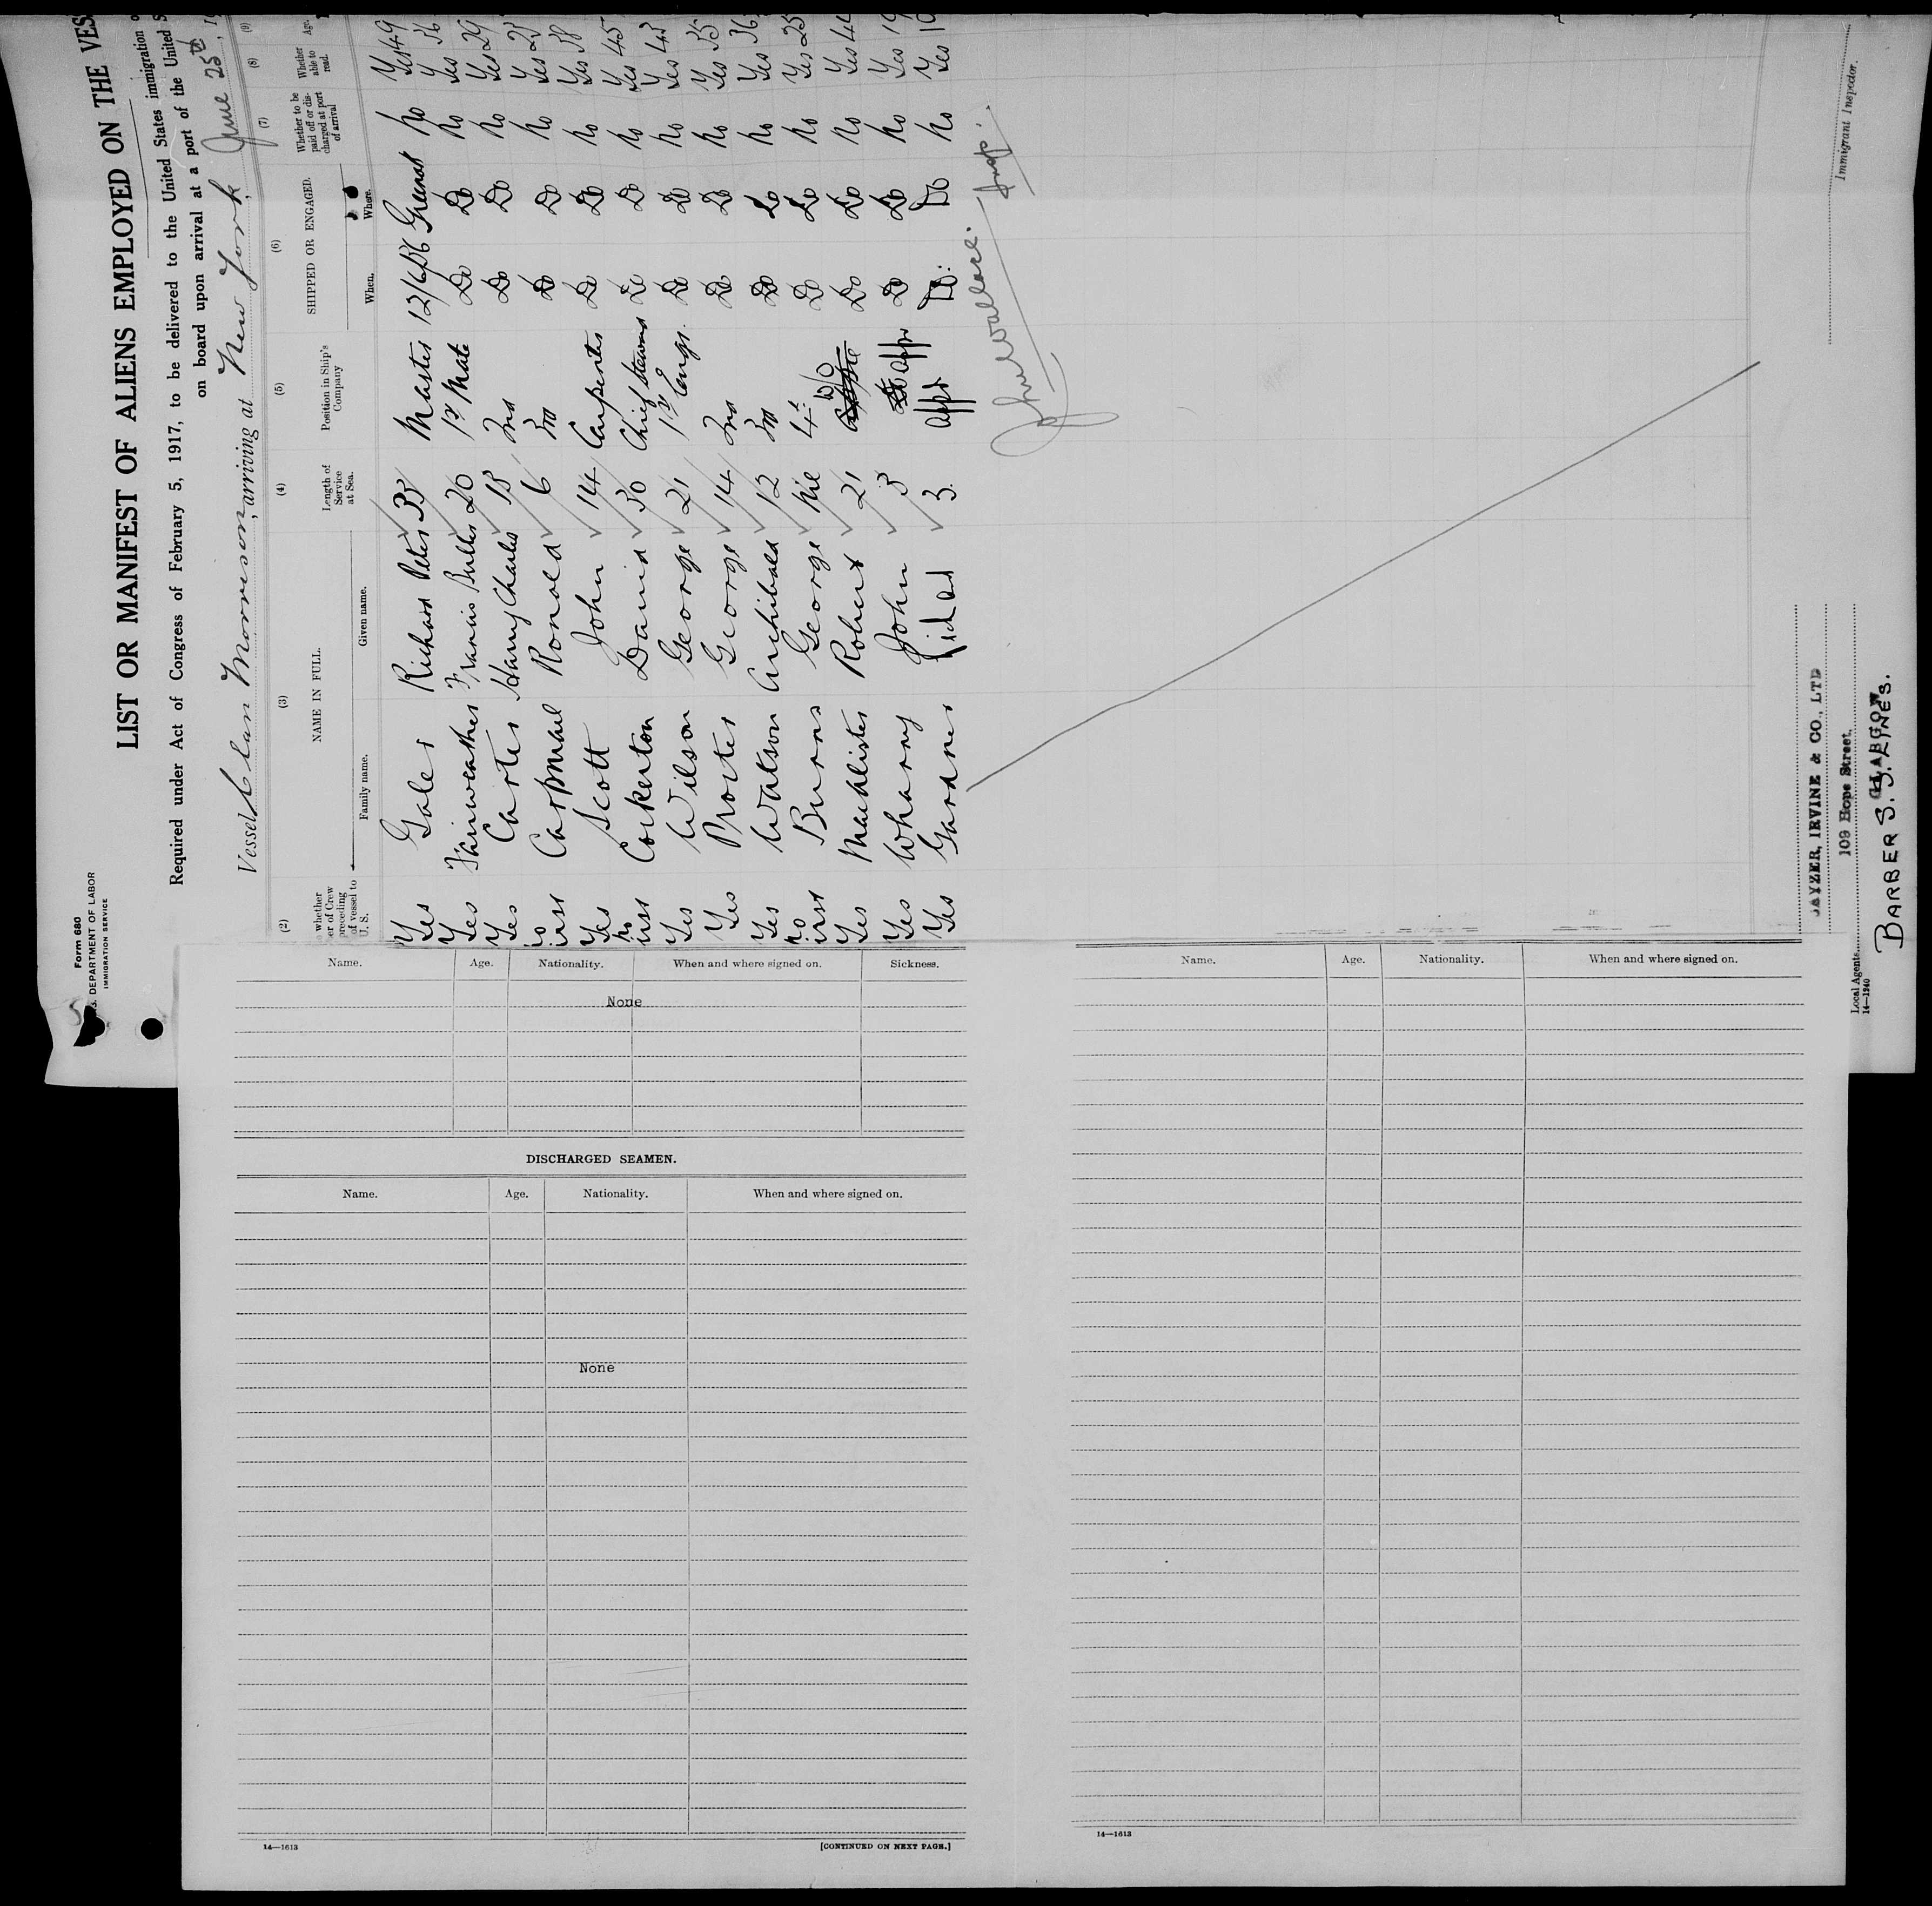 Form 680
DEPARTMENT OF LABOR
IMMIGRATION SERVICE
LIST OR MANIFEST OF ALIENS EMPLOYED ON THE VES
Required under Act of Congress of February 5, 1917, to be delivered to the United States immigration o
on board upon arrival at a port of the United S
Vessel Clan Morrison, arriving at New York, June 25th, 1
(2) (3) (4) (5) (6) (7) (8) (9)
whether er of Crew preceding of vessel to U. S.
NAME IN FULL.
Family name. Given name.
Length of Service at Sea.
Position in Ship's Company
SHIPPED OR ENGAGED.
When. Where.
Whether to be paid off or discharged at port of arrival
Whether able to read.
Age.
Yes Gales Richard Peter 35 Master 12/6/36 No Yes 49
Yes Fairweather Francis Butler 20 1st Mate Do Do No Yes 36
Yes Carter Harry Charles 13 2nd Do Do No Yes 29
Carpmael Ronald 6 3rd Do Do No Yes 23
Yes Scott John 14 Carpenter Do Do No Yes 38
Cockerton David 30 Chief Steward Do Do No Yes 45
Yes Wilson George 21 1st Engr. Do Do No Yes 43
Yes Procter George 14 2nd Do Do No Yes 35
Yes Watson Archibald 12 3rd Do Do No Yes 36
Burns George Nil 4th Do Do No Yes 25
Yes MacAlister Robert 21 W/O Do Do No Yes 44
Yes Wharry John 3 App Do Do No Yes 19
Yes Gardner 3 App Do Do No Yes 19
John Wallace.
CAYZER, IRVINE & CO., LTD
109 Hope Street,
GLASGOW
BARBER S.S. LINES.
Local Agents
14—1240
Immigrant Inspector.
Name. Age. Nationality. When and where signed on. Sickness.
None
DISCHARGED SEAMEN.
Name. Age. Nationality. When and where signed on.
None
14—1613
[CONTINUED ON NEXT PAGE.]
Name. Age. Nationality. When and where signed on.
14—1613